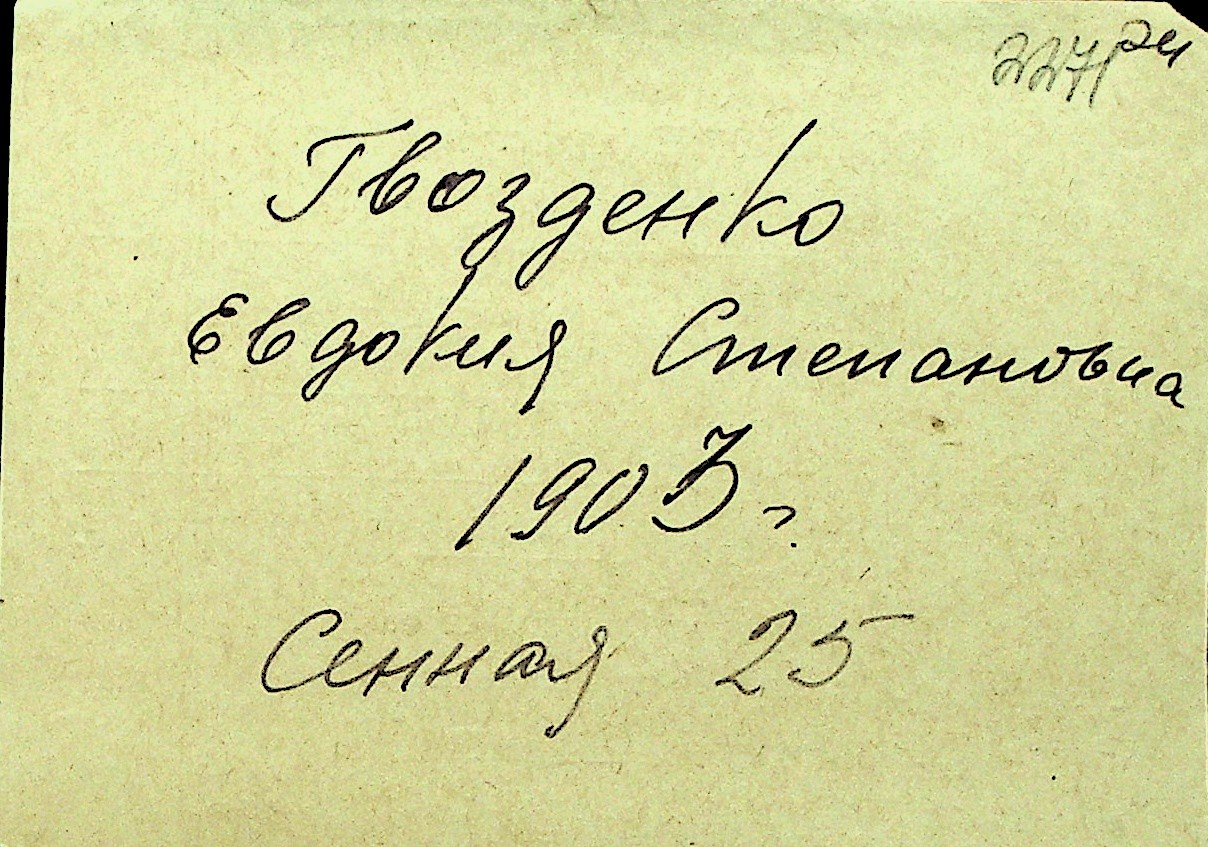 Гвозденко
Евдокия Степановна
1903 г.
Сенная 25